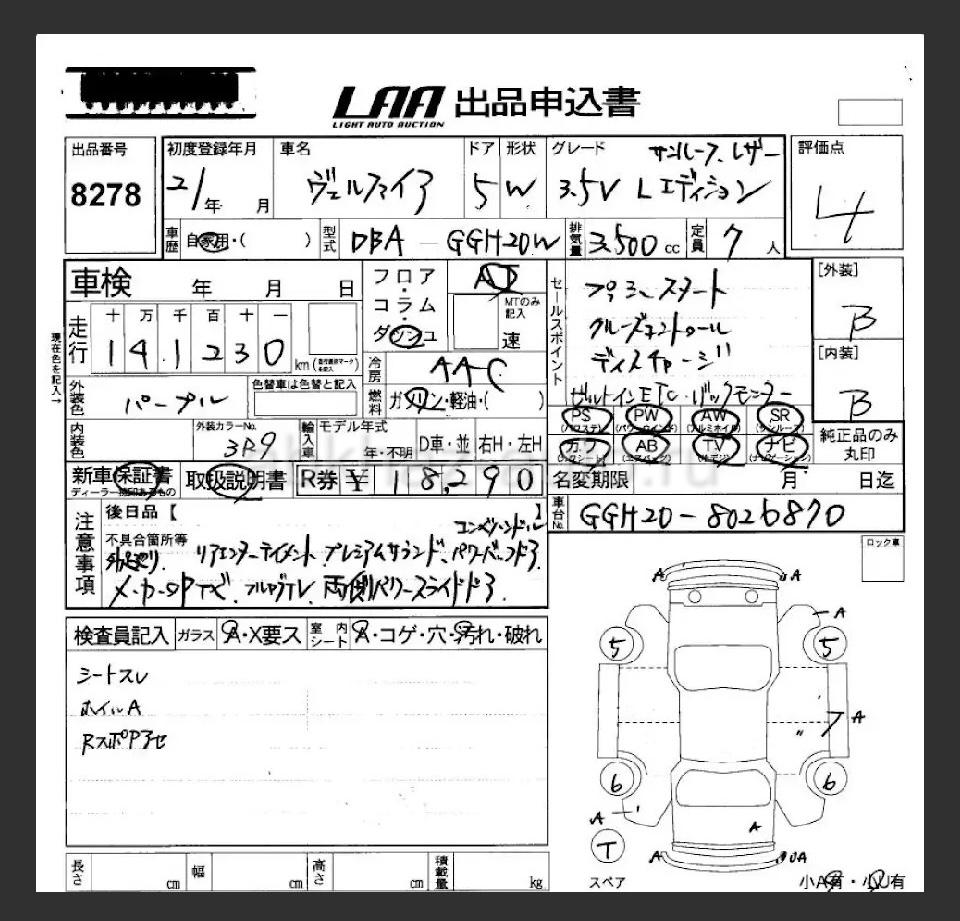 LAA 出品申込書
LIGHT AUTO AUCTION
出品番号
8278
初度登録年月
21年 月
車名
ヴェルファイア
ドア
5
形状
W
グレード
サンルーフ、レザー
3.5V Lエディション
評価点
4
車歴 自家用・( )
型式 DBA - GGH20W
排気量 3,500 cc
定員 7 人
車検 年 月 日
フロア・コラム ダッシュ
AT
MTのみ記入
速
セールスポイント
プッシュスタート
クルーズコントロール
ディスチャージ
ビルトインETC・バックモニター
[外装]
B
[内装]
B
現在色を記入→
走行 十 万 千 百 十 一
141230 km
冷房 AAC
燃料 ガソリン・軽油・( )
外装色 パープル
色替車は色替と記入
内装色
外装カラーNo.
3R9
輸入車 モデル年式
年・不明
D車・並
右H・左H
PS PW AW SR
カワ AB TV ナビ
純正品のみ丸印
新車保証書
ディーラー捺印あるもの
取扱説明書
R券 ¥ 18,290
名変期限 月 日迄
車台No. GGH20-8026870
注意事項
後日品【 】
不具合箇所等
コンビハンドル
リアエンターテイメント プレミアムサウンド、パワーバックドア
メーカーOPナビ、フルセグTV、両側パワースライドドア
ロック車
検査員記入
ガラス A・X要ス
室内シート A・コゲ・穴・汚れ・破れ
シートスレ
ホイルA
A A
A
5 5
7 A
6 6
A
A
T
A UA
スペア
小A有・小U有
長さ cm
幅 cm
高さ cm
積載量 kg